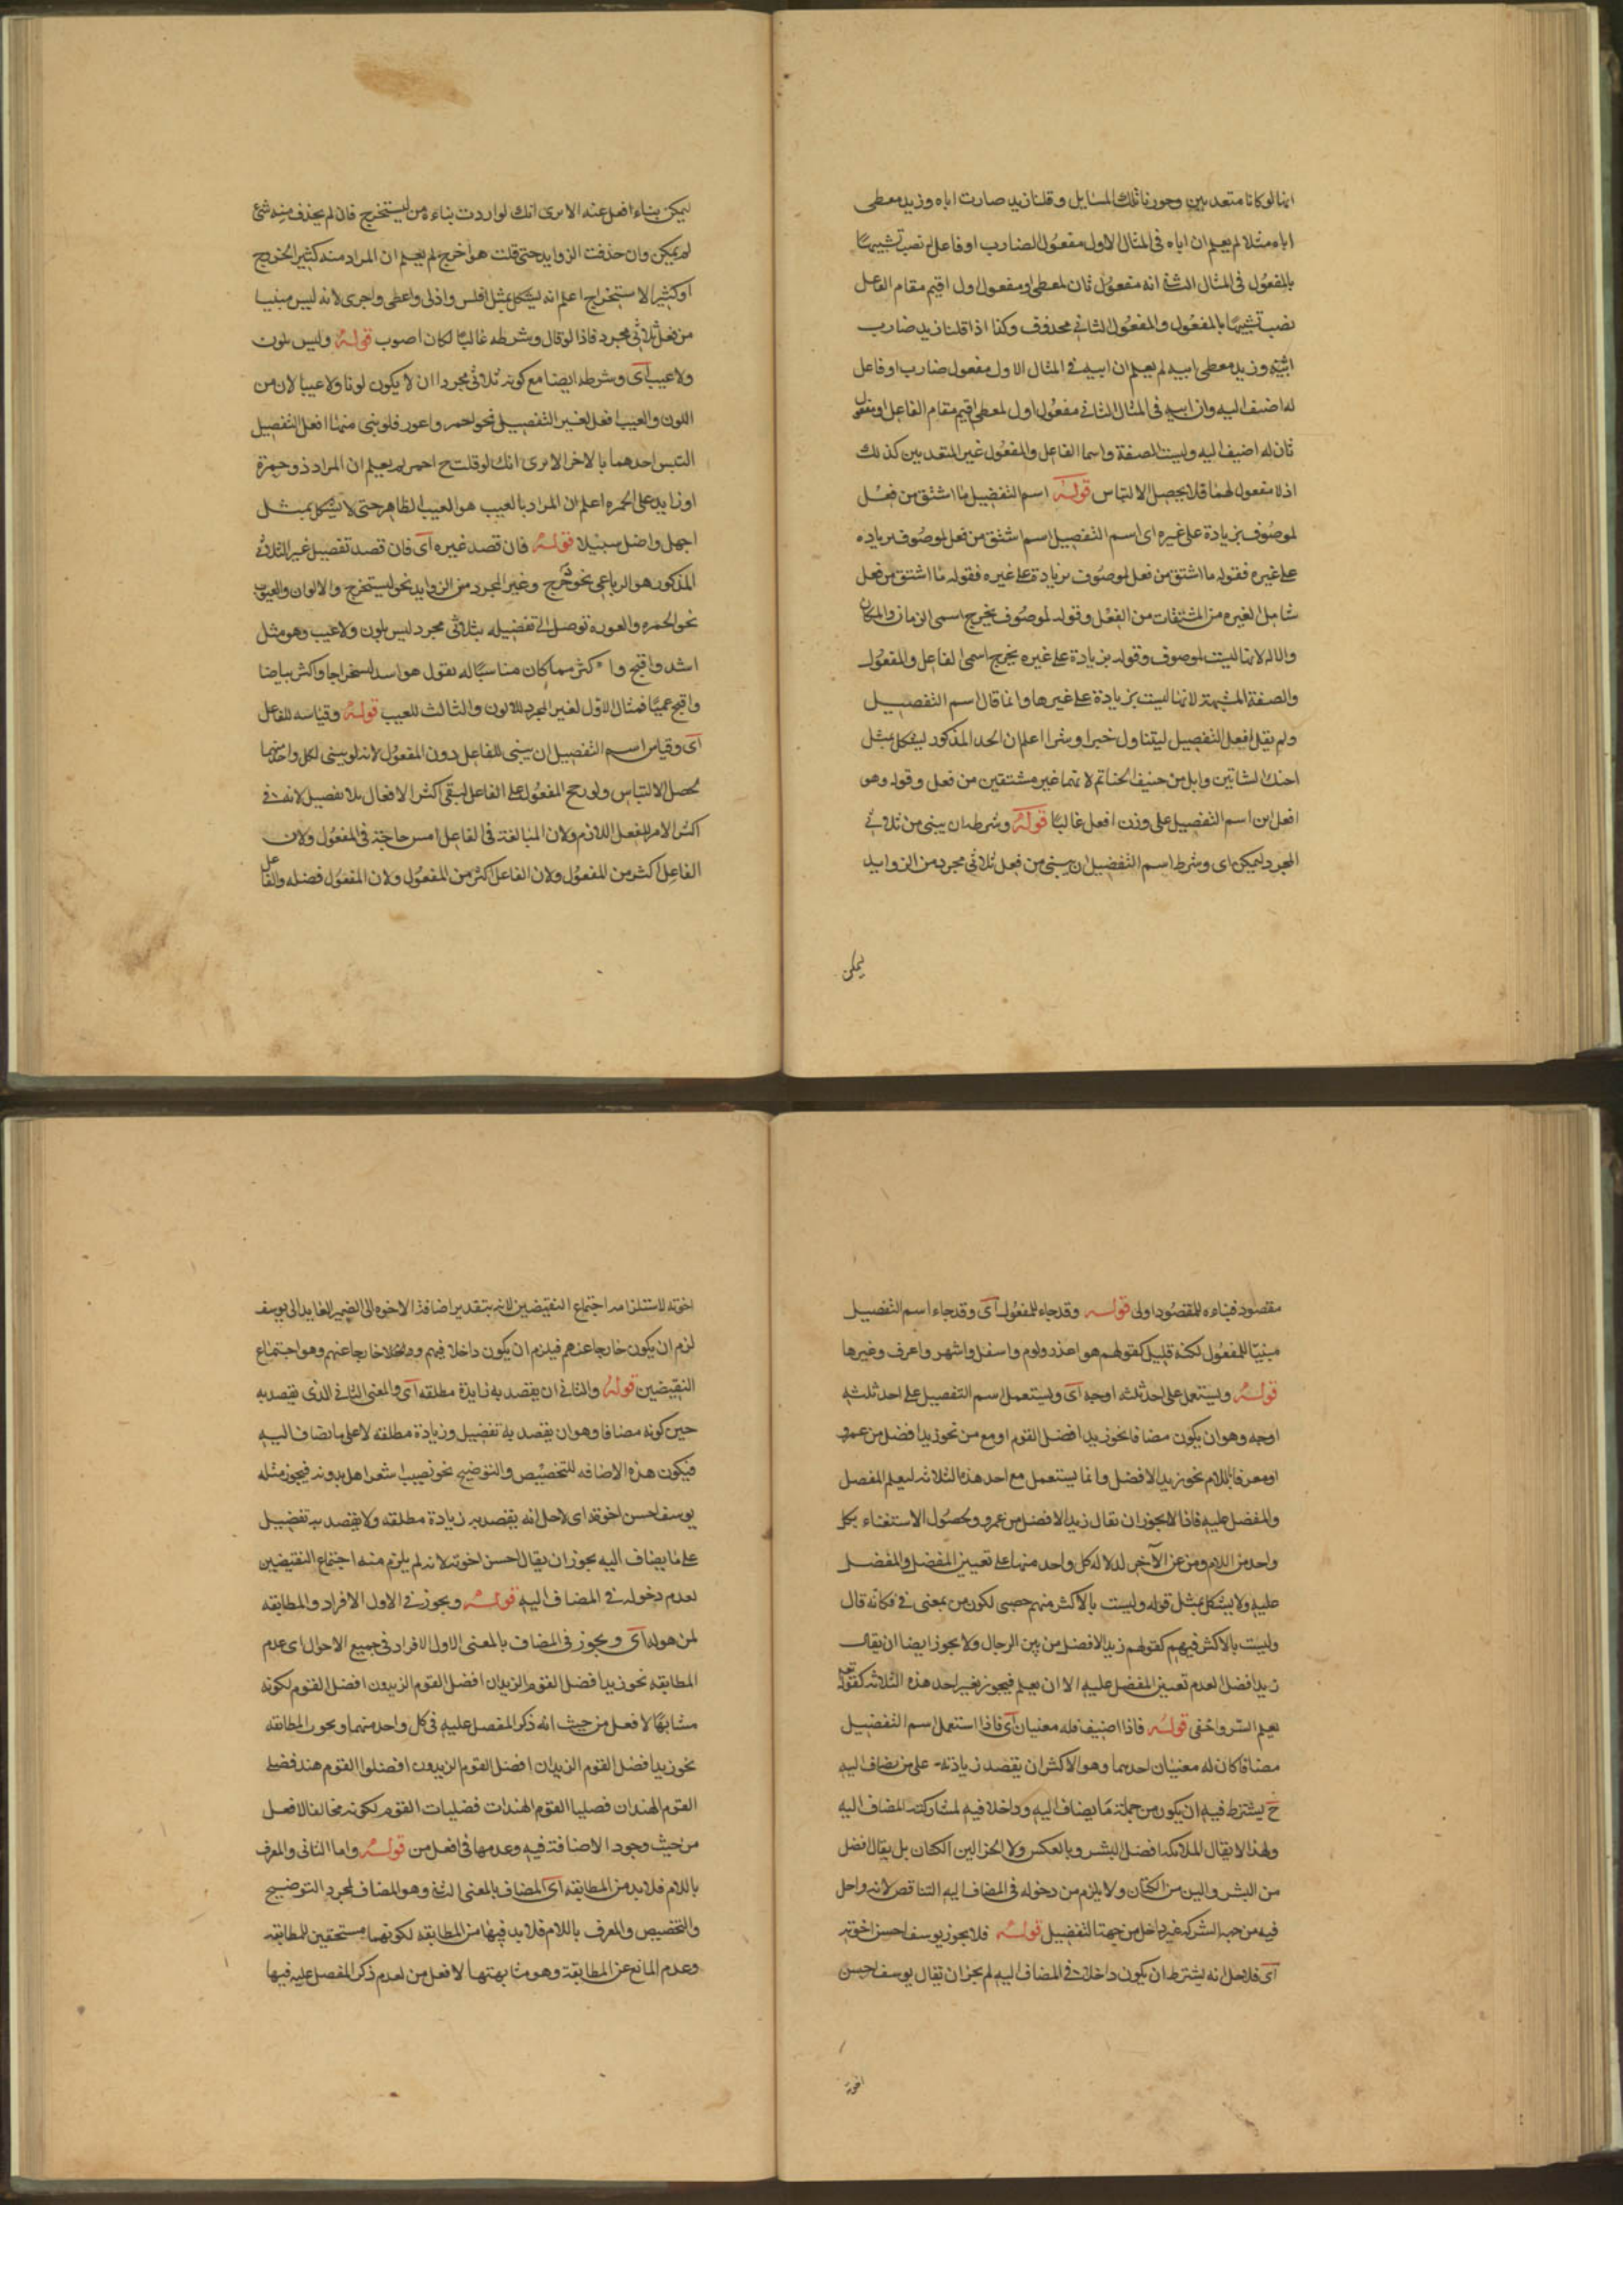 انهما لو كانا متعديين وجوزنا تلك المسايل وقلنا زيد ضارت اباه وزيد معطى
اباه مثلا لم يعلم ان اباه فى المثال الاول مفعول الضارب او فاعل له نصب تشبيها
بالمفعول فى المثال الثانى انه مفعول ثان لمعطى او مفعول اول اقيم مقام الفاعل
نصب تشبيها بالمفعول والمفعول الثانى محذوف وكذا اذا قلنا زيد ضارب
ابيه وزيد معطى ابيه لم يعلم ان ابيه فى المثال الاول مفعول ضارب او فاعل
له اضيف اليه وان ابيه فى المثال الثانى مفعول اول لمعطى اقيم مقام الفاعل او مفعول
ثان له اضيف اليه وليست الصفة واسما الفاعل والمفعول غير المتعديين كذلك
اذ لا مفعول لهما فلا يحصل الالتباس قوله اسم التفضيل ما اشتق من فعل
لموصوف بزيادة على غيره اى اسم التفضيل اسم اشتق من فعل لموصوف بزياده
على غيره فقوله ما اشتق من فعل لموصوف بزيادة على غيره فقوله ما اشتق من فعل
شامل لغيره من المشتقات من الفعل وقوله لموصوف يخرج اسمى الزمان والمكان
والاله لانها ليست لموصوف وقوله بزيادة على غيره يخرج اسمى الفاعل والمفعول
والصفة المشبهة لانها ليست بزيادة على غيرها وانما قال اسم التفضيل
ولم يقل افعل التفضيل ليتناول خيرا وشرا اعلم ان الحد المذكور ليشكل بمثل
احنك الشاتين وابل من حنيف الحناتم لانهما غير مشتقين من فعل وقوله وهو
افعل اى اسم التفضيل على وزن افعل غالبا قوله وشرطه ان يبنى من ثلاثى
المجرد ليمكن اى وشرط اسم التفضيل ان يبنى من فعل ثلاثى مجرد من الزوايد
يمكن
ليمكن بناء افعل عنه الا ترى انك لو اردت بناءه من ليستخرج فان لم يحذف منه شئ
لم يمكن وان حذفت الزوايد حتى قلت هو اخرج لم يعلم ان المراد منه كثير الخروج
او كثير الاستخراج اعلم انه ليشكل بمثل افلس واذلى واعطى واجرى لانه ليس مبنيا
من فعل ثلاثى مجرد فاذا لو قال وشرطه غالبا لكان اصوب قوله وليس بلون
ولا عيب اى وشرطه ايضا مع كونه ثلاثى مجردا ان لا يكون لونا ولا عيبا لان من
اللون والعيب افعل لغير التفصيل نحو احمر واعور فلو بنى منهما افعل التفصيل
التبس احدهما بالاخر الا ترى انك لو قلت ح احمر لم يعلم ان المراد ذو حمرة
او زايد على الحمره اعلم ان المراد بالعيب هو العيب الظاهر حتى لا يشكل بمثل
اجهل واضل سبيلا قوله فان قصد غيره اى فان قصد تفصيل غير الثلاثى
المذكور هو الرباعى نحو دحرج وغير المجرد من الزوايد نحو ليستخرج والالوان والعيوب
نحو الحمره والعوره توصل الى تفضيله بثلاثى مجرد ليس بلون ولا عيب وهو مثل
اشد واقبح واكثر مما كان مناسبا له يقول هو اشد استخراجا واكثر بياضا
واقبح عميا فمثال الاول لغير المجرد للالون والثالث للعيب قوله وقياسه للفاعل
اى وقياس اسم التفصيل ان يبنى للفاعل دون المفعول لانه لو بنى لكل واحد منهما
لحصل الالتباس ولو رجح المفعول على الفاعل لبقى اكثر الافعال بلا تفصيل لانه فى
اكثر الامر للفعل اللازم ولان المبالغة فى الفاعل امس حاجة فى المفعول ولان
الفاعل اكثر من المفعول ولان الفاعل اكثر من المفعول ولان المفعول فضله والفاعل
مقصود فبناءه للمقصود اولى قوله وقد جاء للمفعول اى وقد جاء اسم التفصيل
مبنيا للمفعول لكنه قليل كقولهم هو اعذر والوم واسفل واشهر واعرف وغيرها
قوله ويستعمل على احد ثلثه اوجه اى ويستعمل اسم التفصيل على احد ثلثه
اوجه وهو ان يكون مضافا نحو زيد افضل القوم او مع من نحو زيد افضل من عمرو
او معرفا باللام نحو زيد الافضل وانما يستعمل مع احد هذه الثلاثه ليعلم المفصل
والمفضل عليه فاذا لا يجوز ان يقال زيد الافضل من عمرو ولحصول الاستغناء بكل
واحد من اللام ومن عن الآخر لدلاله كل واحد منهما على تعيين المفضل والمفضل
عليه ولا يشكل بمثل قوله وليست بالاكثر منهم حصى لكون من بمعنى فى فكانه قال
وليست بالاكثر فيهم كقولهم زيد الافضل من بين الرجال ولا يجوز ايضا ان يقال
زيد افضل لعدم تعيين المفضل عليه الا ان يعلم فيجوز بغير احد هذه الثلاثه كقوله تعلى
يعلم السر واخفى قوله فاذا اضيف فله معنيان اى فاذا استعمل اسم التفضيل
مضافا كان له معنيان احديهما وهو الاكثر ان يقصد زيادته على من يضاف اليه
ح يشترط فيه ان يكون من جملة ما يضاف اليه وداخلا فيه لمشاركته المضاف اليه
ولهذا لا يقال الملايكه افضل البشر وبالعكس ولا الخز الين الكتان بل يقال افضل
من البشر والين من الكتان ولا يلزم من دخوله فى المضاف اليه التناقض لانه داخل
فيه من جهه الشركه غير داخل من جهة التفضيل قوله فلا يجوز يوسف احسن اخوته
اى فلاجل انه يشترط ان يكون داخلا فى المضاف اليه لم يجز ان يقال يوسف احسن
اخوته
اخوته لاستلزامه اجتماع النقيضين لانه بتقدير اضافة الاخوه الى الضمير العايد الى يوسف
لزم ان يكون خارجا عنهم فيلزم ان يكون داخلا فيهم وداخلا خارجا عنهم وهو اجتماع
النقيضين قوله والثانى ان يقصد به زيادة مطلقه اى والمعنى الثانى الذى يقصد به
حين كونه مضافا وهو ان يقصد به تفضيل وزيادة مطلقه لا على ما يضاف اليه
فيكون هذه الاضافه للتخصيص والتوضيح نحو نصيب اشعر اهل بدونه فيجوز مثله
يوسف احسن اخوته اى لاجل انه يقصد به زيادة مطلقه ولا يقصد به تفضيل
على ما يضاف اليه يجوز ان يقال احسن اخوته لانه لم يلزم منه اجتماع النقيضين
لعدم دخوله فى المضاف اليه قوله ويجوز فى الاول الافراد والمطابقه
لمن هو له اى ويجوز فى المضاف بالمعنى الاول الافراد فى جميع الاحوال اى عدم
المطابقه نحو زيد افضل القوم الزيدان افضل القوم الزيدون افضل القوم لكونه
مشابها لافعل من حيث انه ذكر المفصل عليه فى كل واحد منهما ويجوز المطابقه
نحو زيد افضل القوم الزيدان افضل القوم الزيدون افضلوا القوم هند فضلى
القوم الهندان فصليا القوم الهندات فضليات القوم لكونه مخالفا لافعل
من حيث وجود الاضافة فيه وعدمها فى افعل من قوله واما الثانى والمعرف
باللام فلابد من المطابقه اى المضاف بالمعنى الثانى وهو المضاف لمجرد التوضيح
والتخصيص والمعرف باللام فلابد فيهما من المطابقه لكونهما مستحقين للمطابقه
وعدم المانع عن المطابقة وهو مشابهتها لافعل من لعدم ذكر المفصل عليه فيها